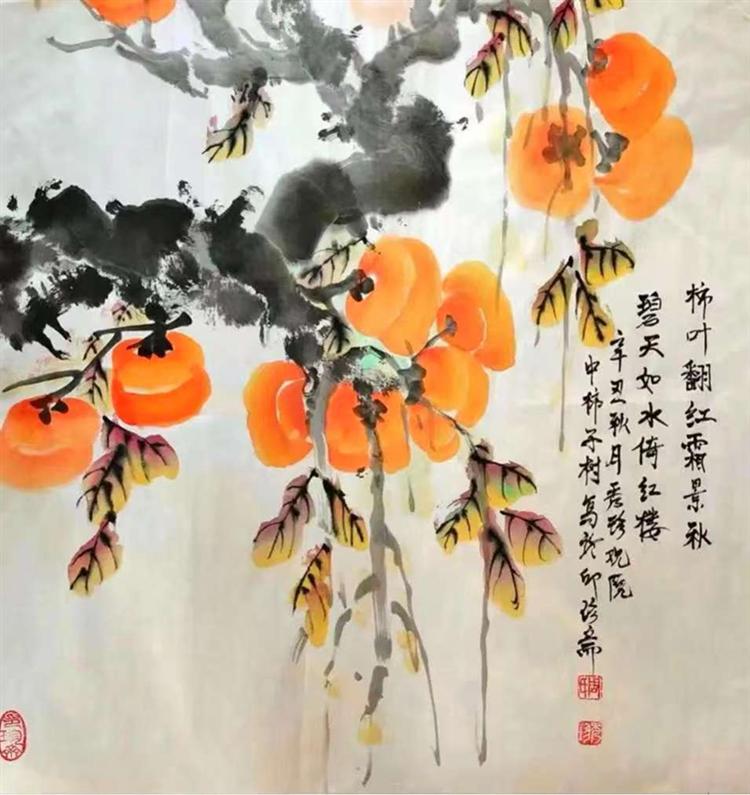 柿叶翻红霜景秋
碧天如水倚红楼
辛丑秋月秀珍观院
中柿子树写於印珍斋